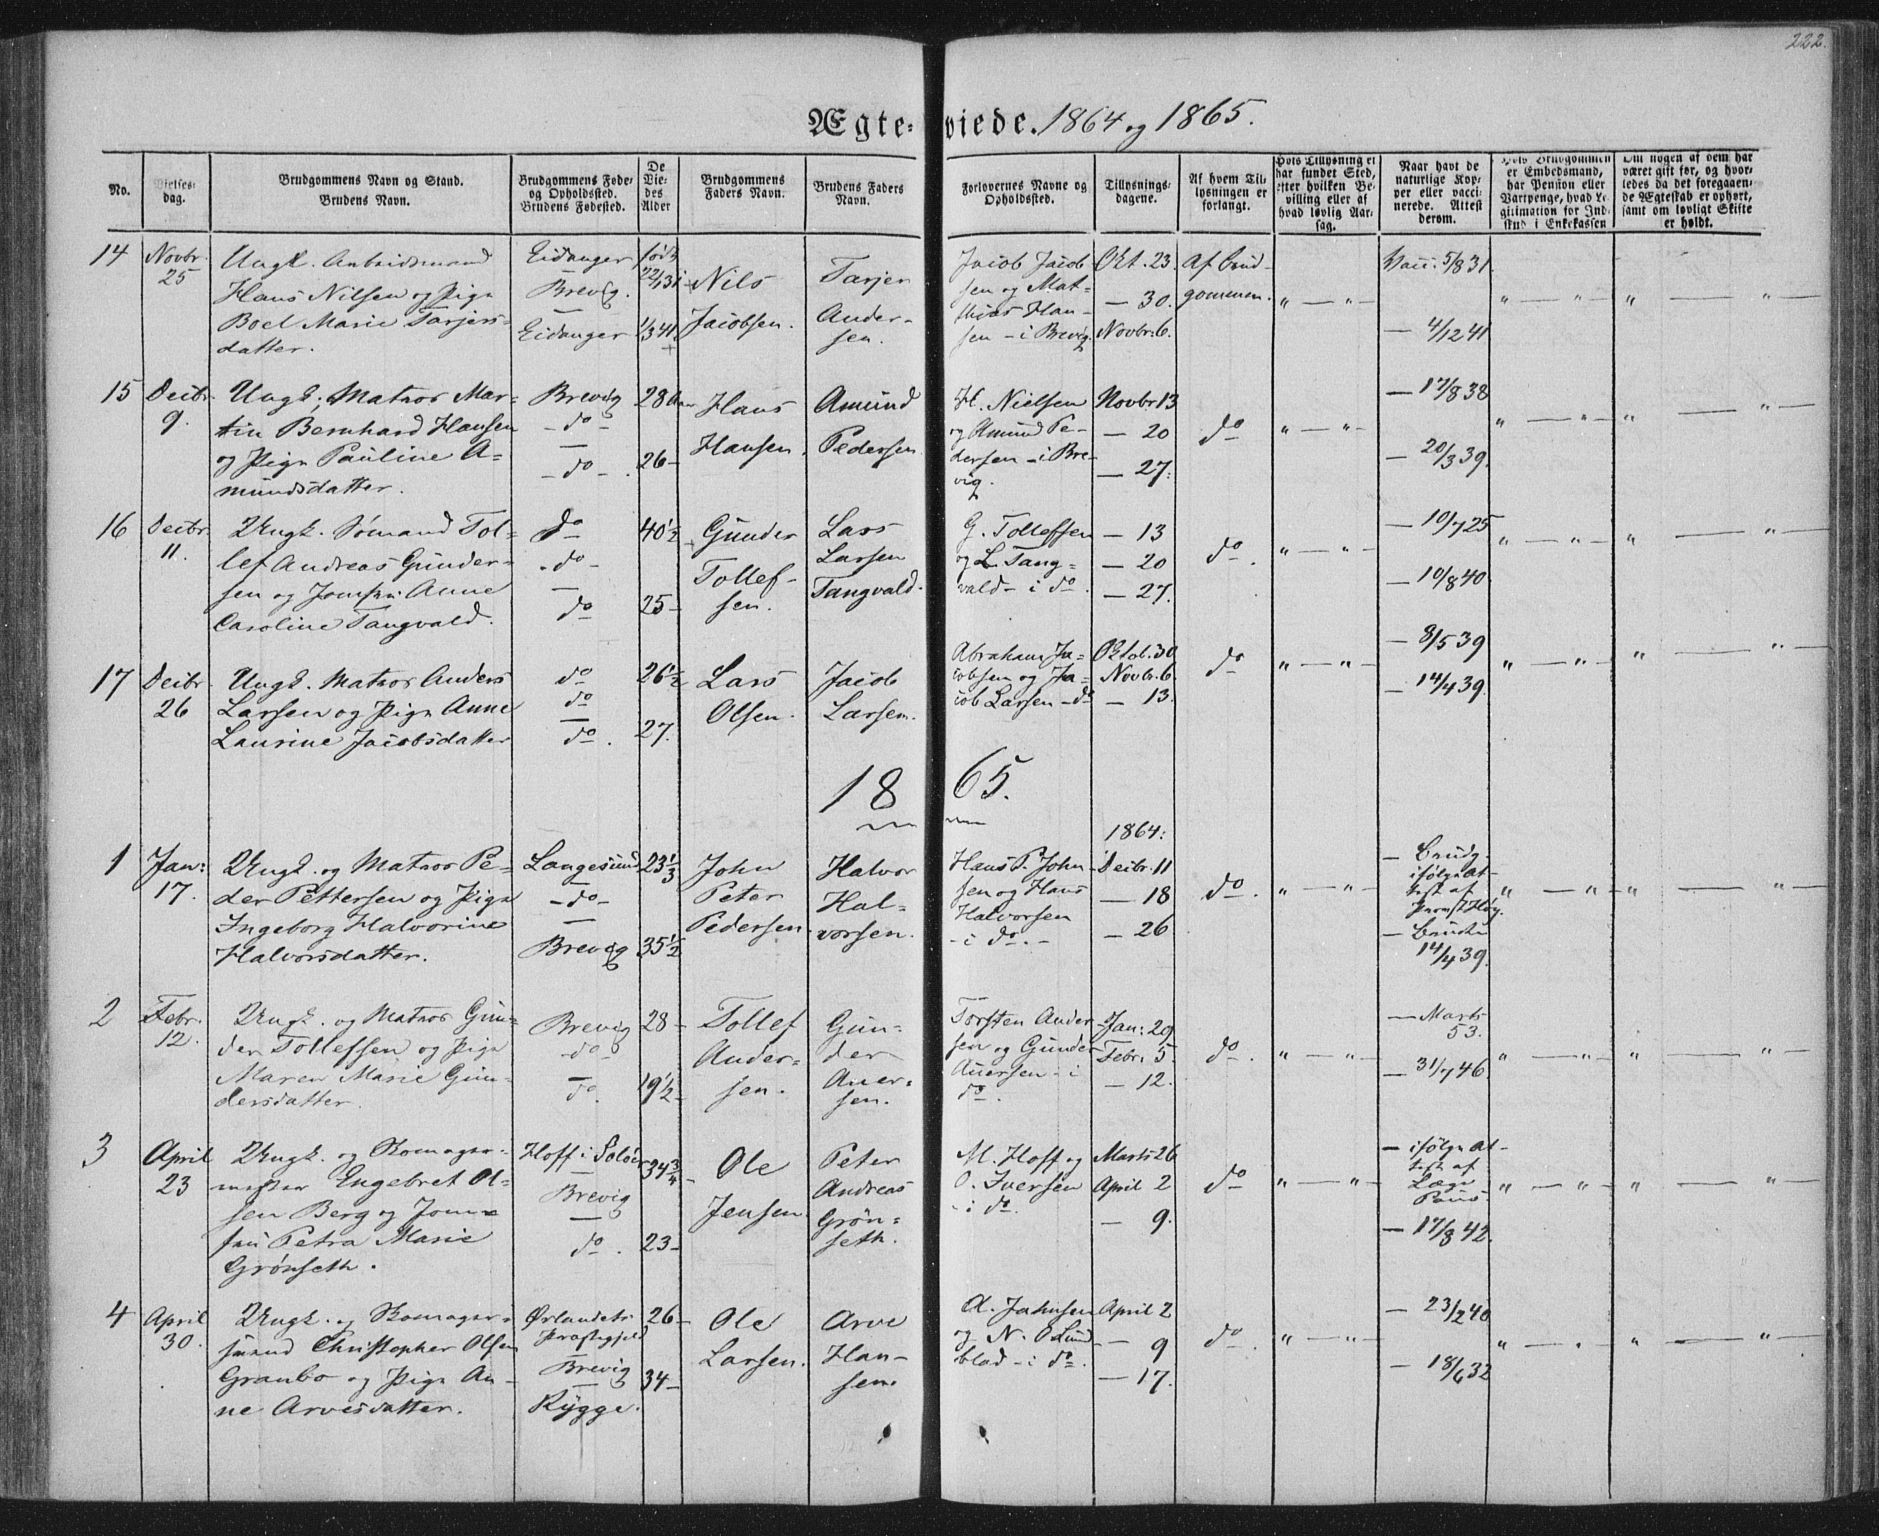 222.
Ægte- viede. 1864 og 1865.
No.
Vielses-
dag.
Brudgommens Navn og Stand.
Brudens Navn.
Brudgommens Føde-
og Opholdssted.
Brudens Fødested.
De
Vie-
des
Alder
Brudgommens
Faders Navn.
Brudens Faders
Navn.
Forlovernes Navne og
Opholdssted.
Tillysnings-
dagene.
Af hvem Til-
lysningen er
forlangt.
Hvis Tillysning ei
har fundet Sted,
efter hvilken Be-
villing eller af
hvad lovlig Aar-
sag.
Naar havt de
naturlige Kop-
per eller vacci-
nerede. Attest
derom.
Hvis Brudgommen
er Embedsmand,
har Pension eller
Vartpenge, hvad Le-
gitimation for Ind-
skud i Enkekassen
Om nogen af dem har
været gift før, og hvor-
ledes da det foregaaen-
de Ægteskab er ophørt,
samt om lovligt Skifte
er holdt.
14
Novbr.
25
Ungk. Arbeidsmand
Hans Nilsen og Pige
Boel Marie Tarjers-
datter.
Eidanger
Brevig.
Eidanger
født
22/1 31
1/3 41
Nils
Jacobsen.
Tarjer
Ander-
sen.
Jacob Jacob-
sen og Mat-
thias Han-
sen - i Brevig.
Okt. 23.
— 30.
Novbr. 6.
Af Brud-
gommen.
" — "
Vacc. 5/8 31
— 4/12 41
" — "
" — "
15
Decbr.
9.
Ungk. Matros Mar-
tin Bernhard Hansen
og Pige Pauline A-
mundsdatter.
Brevig
- do -
- do -
28 Aar
26 -
Hans
Hansen.
Amund
Pedersen
H. Nielsen
og Amund Pe-
dersen - i Bre-
vig.
Novbr 13
— 20
— 27.
do
" — "
— 17/8 38
— 20/3 39.
" — "
" — "
16
Decbr.
11.
Ungk. Sømand Tol-
lef Andreas Gunder-
sen og Jomfru Anne
Caroline Tangvald.
do
- do -
do
40½
25 -
Gunder
Tollef-
sen.
Lars
Larsen
Tangvald.
G. Tollefsen
og L. Tang-
vald - i do.
— 13
— 20
— 27.
do.
" — "
— 10/7 25
— 10/8 40
" — "
" — "
17
Decbr
26
Ungk. Matros Anders
Larsen og Pige Anne
Laurine Jacobsdatter
do
do
do.
26½
27.
Lars
Olsen.
Jacob
Larsen.
Abraham Ja-
cobsen og Ja-
cob Larsen - do
Oktob. 30
Novbr. 6.
— 13.
do
" — "
— 8/5 39
— 14/4 39.
" — "
" — "
18 65.
1
Jan:
17.
Ungk. og Matros Pe-
der Pettersen og Pige
Ingeborg Halvorine
Halvorsdatter.
Langesund
- do -
Brevig
23⅓
35½
John
Peter
Pedersen.
Halvor
Hal-
vorsen.
Hans P. John-
sen og Hans
Halvorsen
- i do. -
1864:
Decbr. 11
— 18
— 26
do.
" — "
— Brudg.
ifølge At-
test af
Provst Høg.
— Bruden
14/4 39.
" — "
" — "
2
Febr.
12.
Ungk. og Matros Gun-
der Tollefsen og Pige
Maren Marie Gun-
dersdatter.
Brevig
- do -
do.
28 -
19½
Tollef
Ander-
sen.
Gun-
der
Auer-
sen.
Torsten Ander-
sen og Gunder
Auersen - i
do.
Jan: 29
Febr. 5
— 12.
do.
" — "
— Marts
53.
— 31/7 46.
" — "
" — "
3
April
23
Ungk. og Skomager-
mester Engebret Ol-
sen Berg og Jom-
fru Petra Marie
Grønseth.
Hoff i Soløer
Brevig
do.
34¾
23 -
Ole
Jensen.
Peter
Andreas
Grøn-
seth.
M. Hoff og
O. Iversen
- i do.
Marts 26
April 2
— 9.
do
" — "
— ifølge At-
test af
Læge
Paus
— 17/8 42.
" — "
" — "
4
April
30.
Ungk. og Skomager-
svend Christopher Olsen
Granbo og Pige An-
ne Arvesdatter.
Ørlandets
Præstegjeld
Brevig
Rygge.
26 -
34 -
Ole
Larsen.
Arve
Han-
sen.
A. Jahnsen
og N. O. Lund-
blad - i do.
April 2
— 9
— 17.
do.
" — "
— 23/2 40
— 18/6 32
" — "
" — "